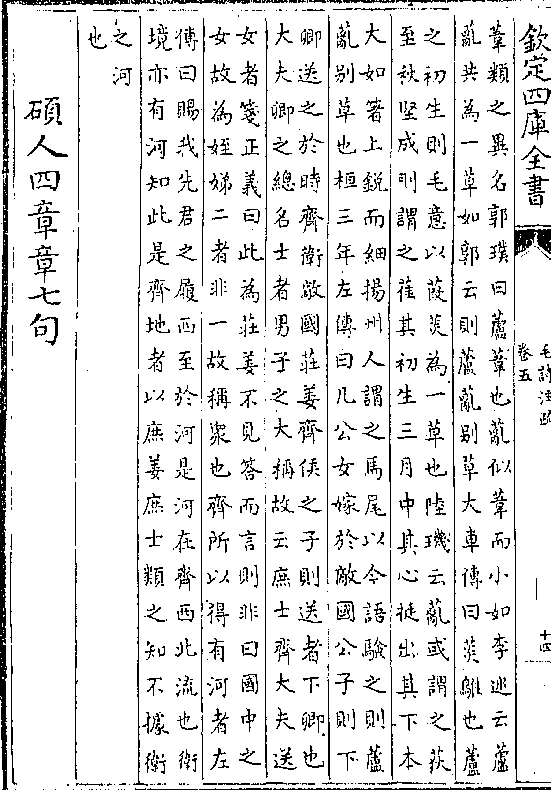 欽定四庫全書
毛詩注疏
卷五
十四
葦類之異名郭璞曰蘆葦也薍似葦而小如李巡云蘆
薍共為一草如郭云則蘆薍别草大車傳曰菼鵻也蘆
之初生則毛意以葭菼為一草也陸璣云薍或謂之荻
至秋堅成則謂之萑其初生三月中其心挺出其下本
大如箸上鋭而細揚州人謂之馬尾以今語驗之則蘆
薍别草也桓三年左傳曰凡公女嫁於敵國公子則下
卿送之於時齊衛敵國莊姜齊侯之子則送者下卿也
大夫卿之總名士者男子之大稱故云庶士齊大夫送
女者箋正義曰此為莊姜不見答而言則非曰國中之
女故為姪娣二者非一故稱衆也齊所以得有河者左
傳曰賜我先君之履西至於河是河在齊西北流也衛
境亦有河知此是齊地者以庶姜庶士類之知不據衛
之河
也
碩人四章章七句